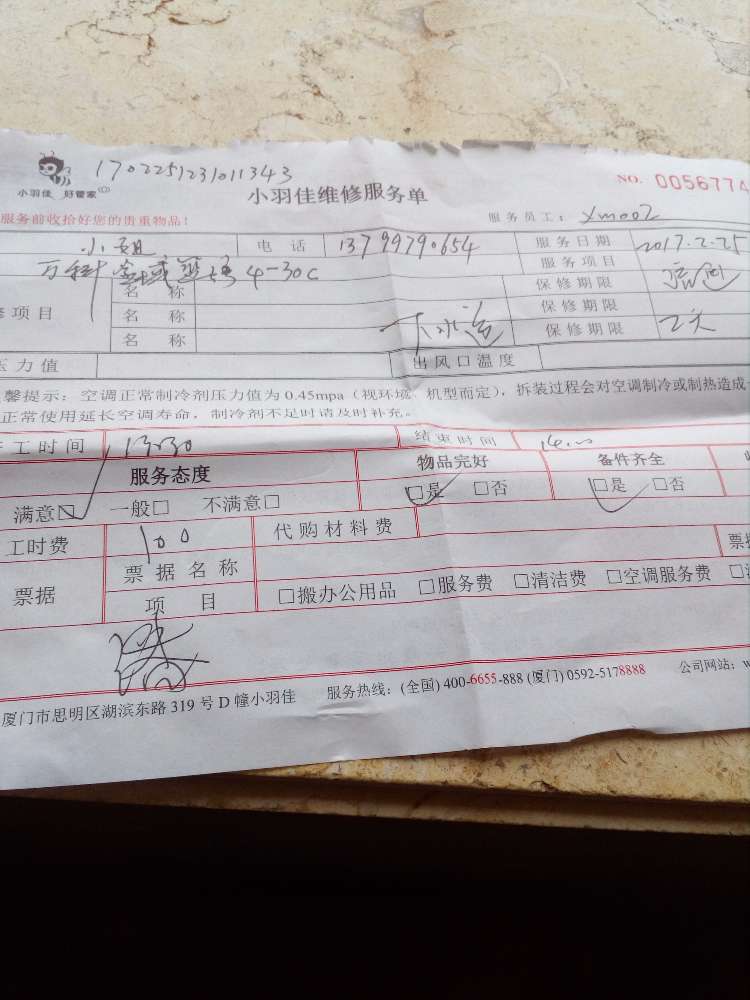 170225123101134​3
小羽佳 好管家
小羽佳维修服务单
NO. 0056774
服务前收拾好您的贵重物品!
服务员工: Xm002
小姐 电话 13799790654 服务日期 2017.2.25
4-30C 服务项目
名称 保修期限
项目 名称 下水道 保修期限
名称 保修期限 2天
压力值 出风口温度
馨提示:空调正常制冷剂压力值为0.45mpa(视环境、机型而定),拆装过程会对空调制冷或制热造成
正常使用延长空调寿命,制冷剂不足时请及时补充。
工时间 13:30 结束时间 14:00
服务态度 物品完好 备件齐全
满意□ 一般□ 不满意□ □是 □否 □是 □否
工时费 100 代购材料费
票据 票据名称 票据
项目 □搬办公用品 □服务费 □清洁费 □空调服务费
厦门市思明区湖滨东路319号D幢小羽佳 服务热线:(全国)400-6655-888(厦门)0592-5178888 公司网站:w